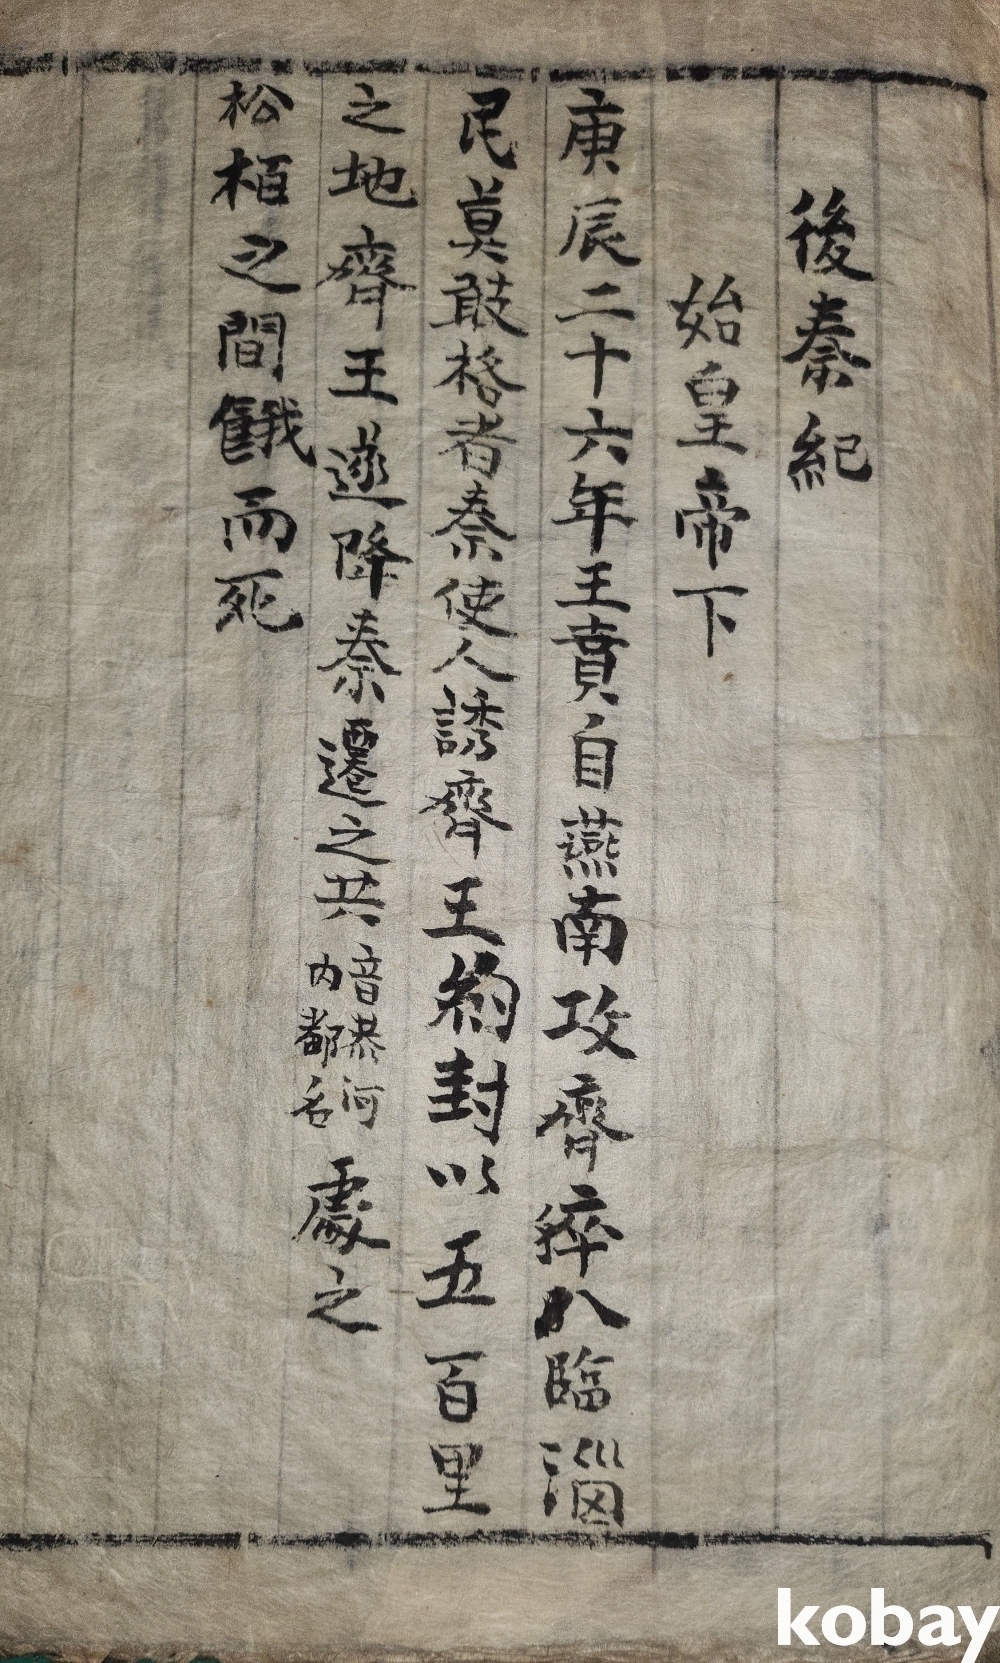 後秦紀
始皇帝下
庚辰二十六年王賁自燕南攻齊猝入臨淄
民莫敢格者秦使人誘齊王約封以五百里
之地齊王遂降秦遷之共音恭河內郡名處之
松栢之間餓而死
kobay